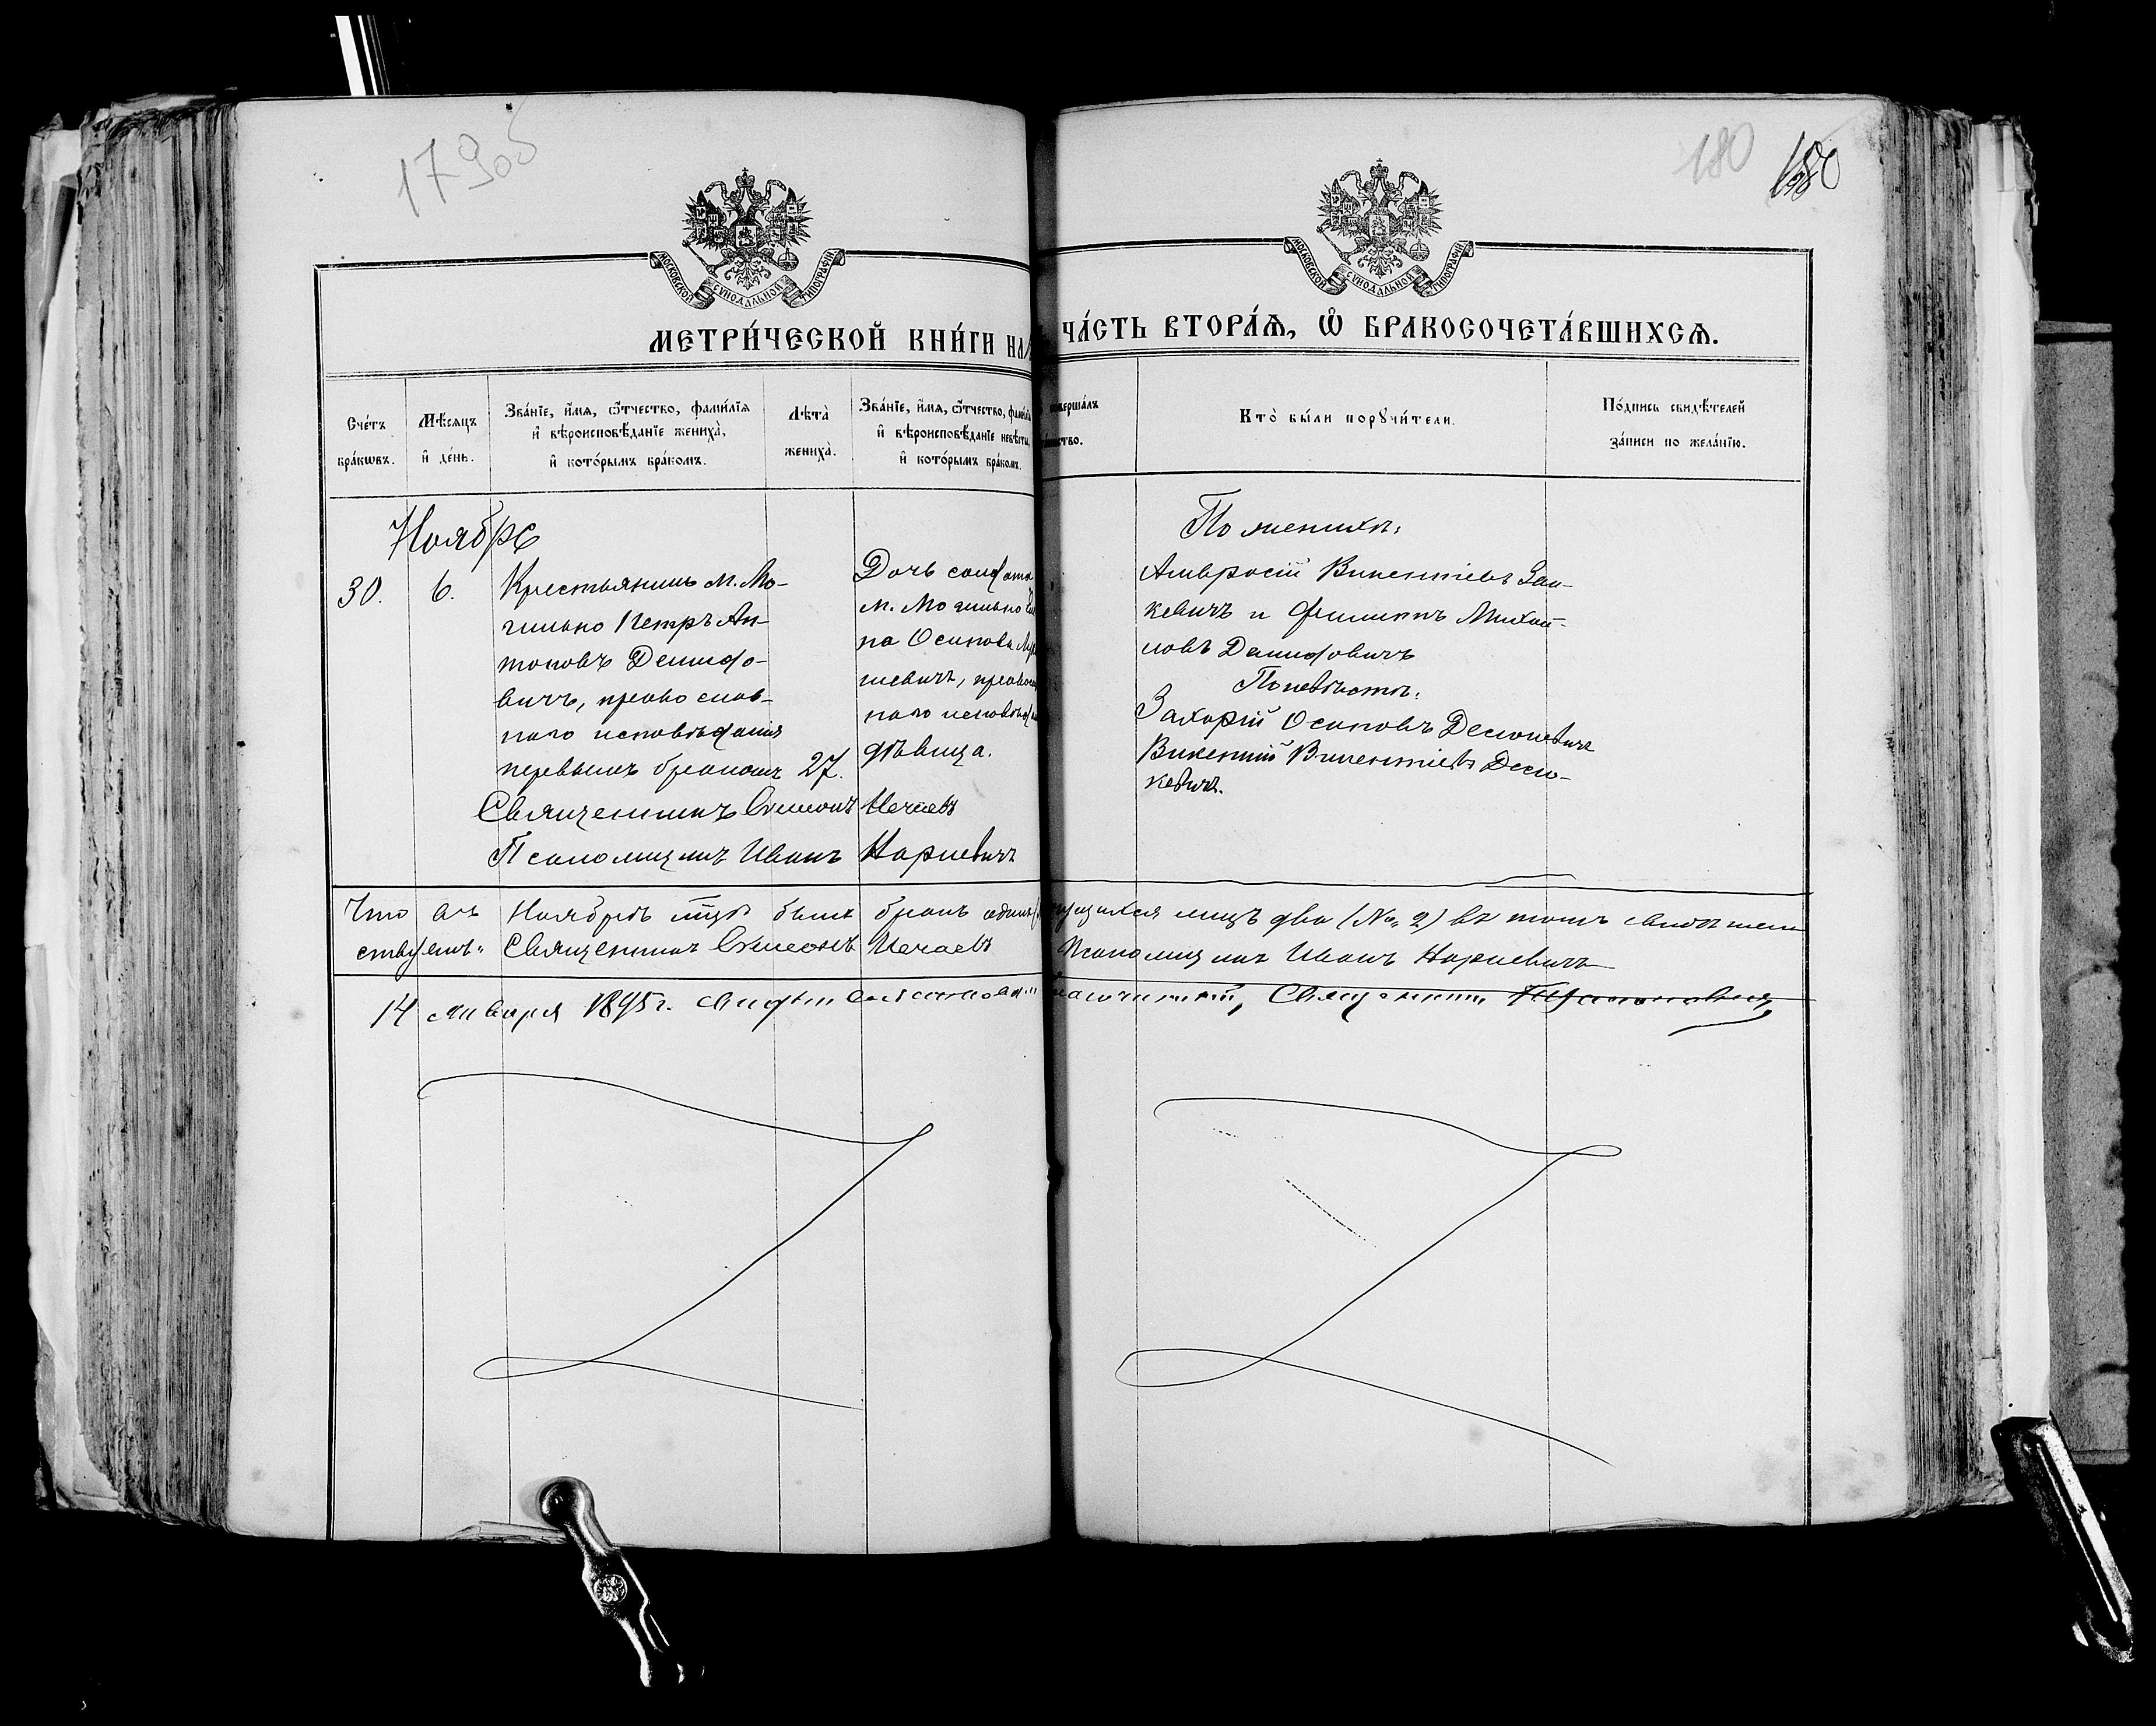 17905
180
180
МОСКОВСКОЙ СѴНОДАЛЬНОЙ ТИПОГРАФІИ
МОСКОВСКОЙ СѴНОДАЛЬНОЙ ТИПОГРАФІИ
МЕТРИ́ЧЕСКОЙ КНИ́ГИ НА
ЧА́СТЬ ВТОРА́Ѧ, Ѽ БРАКОСОЧЕТА́ВШИХСѦ.
Сче́тъ бра́кѡвъ.
Мѣ́сѧцъ и҆ де́нь.
Зва́нїе, и҆́мѧ, ѻ҆́тчество, фами́лїѧ
и҆ вѣроисповѣ́данїе жениха̀,
и҆ кото́рымъ бра́комъ.
Лѣ́та̀ жениха̀.
Зва́нїе, и҆́мѧ, ѻ҆́тчество, фами́лїѧ
и҆ вѣроисповѣ́данїе невѣ́сты,
и҆ кото́рымъ бра́комъ.
совершалъ
Кто̀ бы́ли порꙋчи́тели.
По́дпись свидѣ́телей
за́писи по жела́нїю.
Ноябрь
30. 6.
Крестьянинъ м. Мо-
гильно Петръ Ан-
тоновъ Демидо-
вичъ, православ-
наго исповѣданія
первымъ бракомъ 27.
Дочь солдата
м. Могильно
на Осипова
наго исповѣд
дѣвица.
По женихѣ:
Амвросій Викентіевъ Зан-
кевичъ и Филиппъ Михай-
ловъ Демидовичъ
По невѣстѣ:
Захарій Осиповъ
Викентій Викентіевъ
кевичъ.
Священникъ Симеонъ Нечаевъ
Псаломщикъ Иванъ Наркевичъ
Что въ Ноябрѣ мцѣ былъ бракъ одинъ
щихся лицъ два (№ 2) въ томъ свидѣтель
ствуемъ: Священникъ Симеонъ Нечаевъ Псаломщикъ Иванъ Наркевичъ
14 января 1895 г. Благочинный, Священникъ